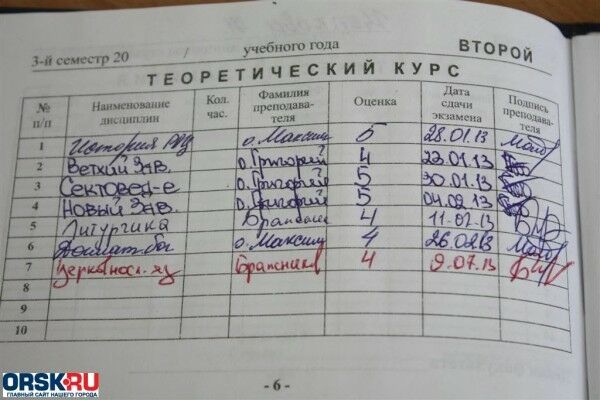 3-й семестр 20 / учебного года ВТОРОЙ
ТЕОРЕТИЧЕСКИЙ КУРС
№ п/п Наименование дисциплин Кол. час. Фамилия преподава- теля Оценка Дата сдачи экзамена Подпись преподава- теля
1 История о. Максим 5 28.01.13
2 Ветхий Зав. о. Григорий 4 23.01.13
3 Сектовед-е о. Григорий 5 30.01.13
4 Новый Зав. о. Григорий 5 04.02.13
5 Литургика 4 11.02.13
6 о. Максим 4 26.02.13
7 Церковносл. яз Бражников 4 9.07.13
8
9
10
- 6 -
ORSK.RU
ГЛАВНЫЙ САЙТ НАШЕГО ГОРОДА